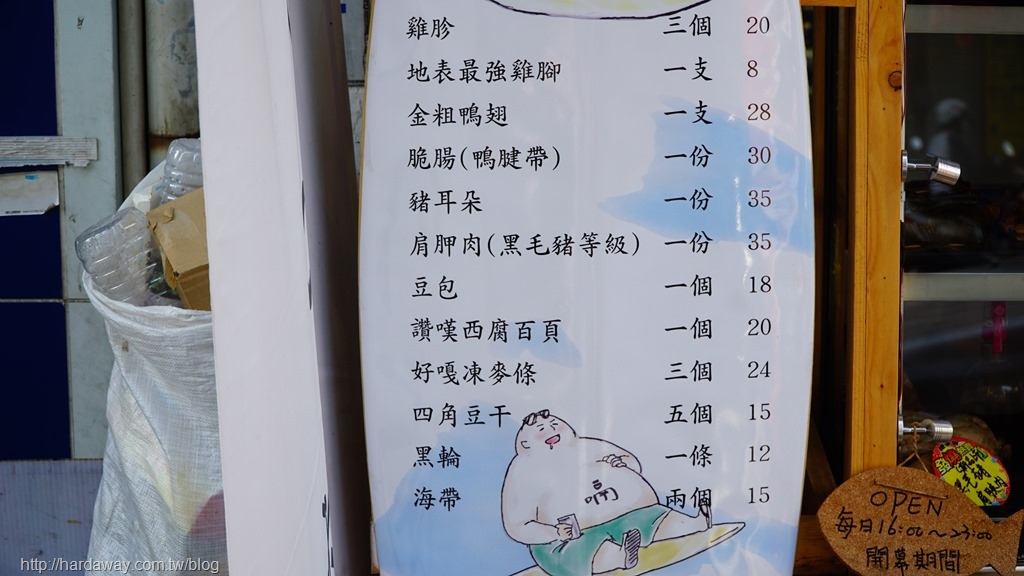 雞胗 三個 20
地表最強雞腳 一支 8
金粗鴨翅 一支 28
脆腸(鴨腱帶) 一份 30
豬耳朵 一份 35
肩胛肉(黑毛豬等級) 一份 35
豆包 一個 18
讚嘆西腐百頁 一個 20
好嘎凍麥條 三個 24
四角豆干 五個 15
黑輪 一條 12
海帶 兩個 15
嗝
OPEN
每日16:00~23:00
開幕期間
http://hardaway.com.tw/blog